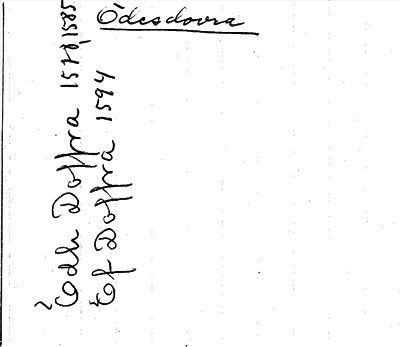 Ödesdovra
Ödh Doffra 1578, 1585
Öf Doffra 1594